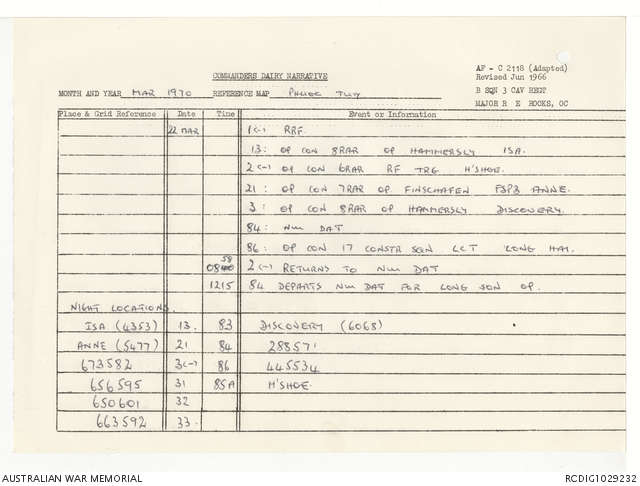 AF - C 2118 (Adapted)
Revised Jun 1966
COMMANDERS DAIRY NARRATIVE
B SQN 3 CAV REGT
MONTH AND YEAR MAR 1970 REFERENCE MAP PHUOC TUY
MAJOR R E ROOKS, OC
Place & Grid Reference Date Time Event or Information
22 MAR 1(-) RRF.
13: OP CON 8RAR OP HAMMERSLY ISA.
2(-) OP CON 6RAR RF TRG H'SHOE.
21: OP CON 7RAR OP FINSCHAFEN FSPB ANNE.
3: OP CON 8RAR OP HAMMERSLY DISCOVERY.
84: NUI DAT
86: OP CON 17 CONSTR SQN LCT LONG HAI.
58
0840 2(-) RETURNS TO NUI DAT
1215 84 DEPARTS NUI DAT FOR LONG SON OP.
NIGHT LOCATIONS.
ISA (4353) 13. 83 DISCOVERY (6068)
ANNE (5477) 21 84 288571
673582 3(-) 86 445534
656595 31 85A H'SHOE.
650601 32
663592 33.
AUSTRALIAN WAR MEMORIAL RCDIG1029232